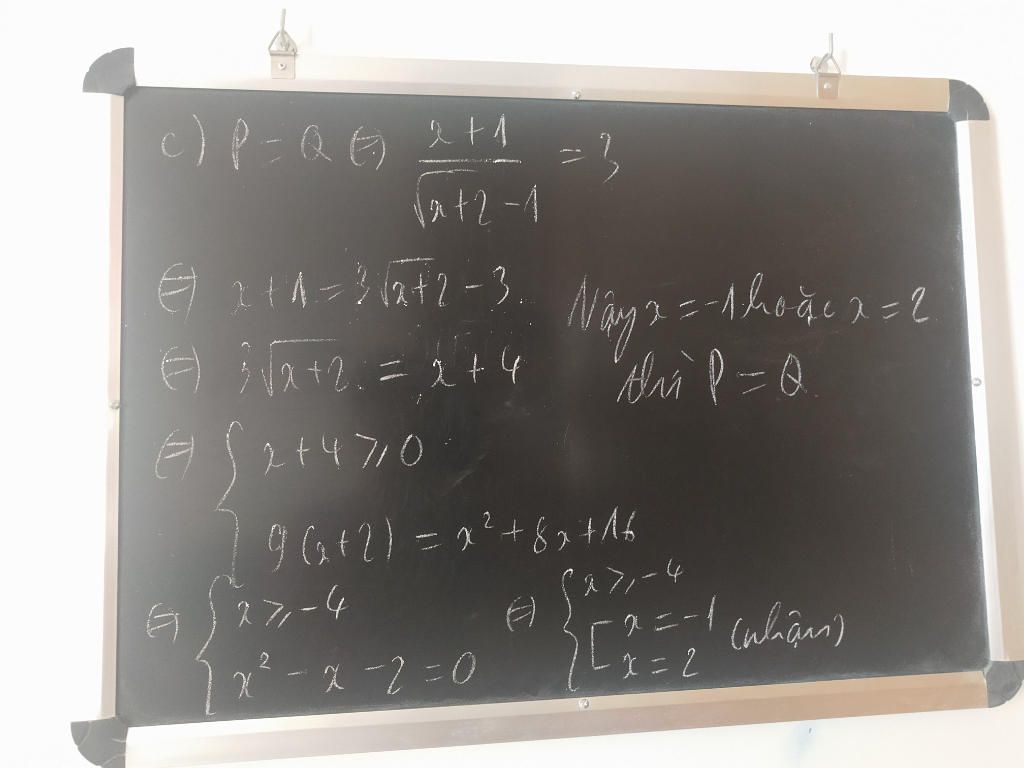 c) P = Q ⇔ \frac{x+1}{\sqrt{x+2}-1} = 3
⇔ x+1 = 3\sqrt{x+2} - 3
⇔ 3\sqrt{x+2} = x+4
⇔ { x+4 ⩾ 0
9(x+2) = x² + 8x + 16
⇔ { x ⩾ -4
x² - x - 2 = 0
⇔ { x ⩾ -4
[ x = -1
x = 2 (nhận)
Vậy x = -1 hoặc x = 2
thì P = Q